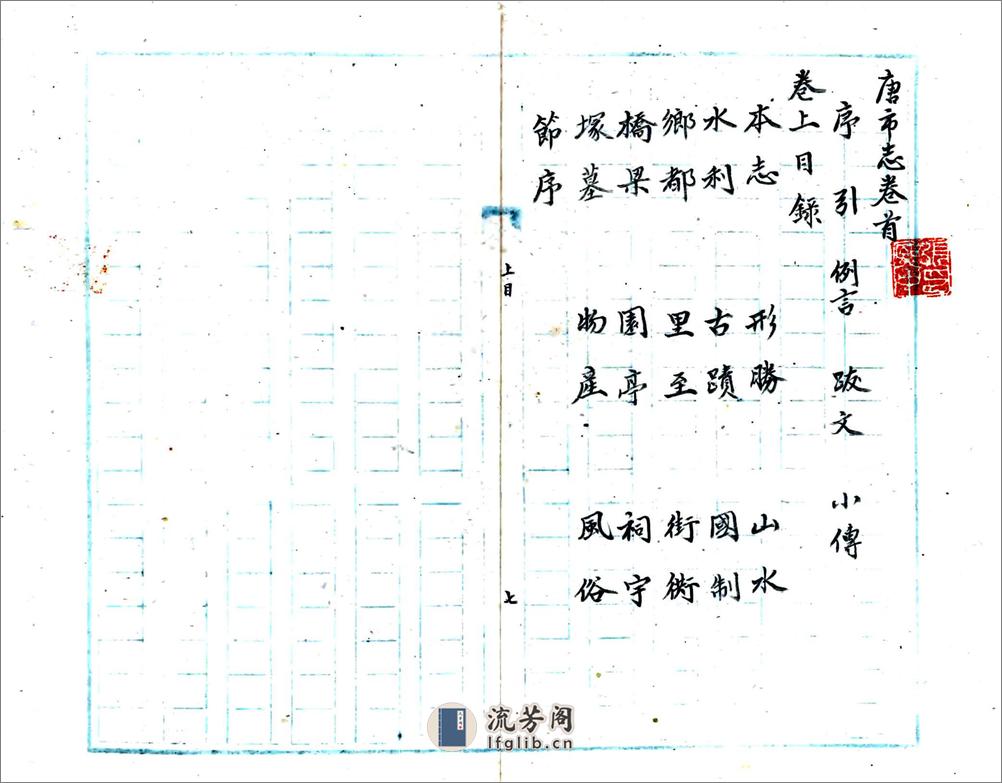 唐市志卷首
序 引 例言 跋文 小傳
卷上目錄
本志 形勝 山水
水利 古蹟 國制
鄉都 里至 街衖
橋梁 園亭 祠宇
塚墓 物產 風俗
節序
上目
七
流芳阁
lfglib.cn